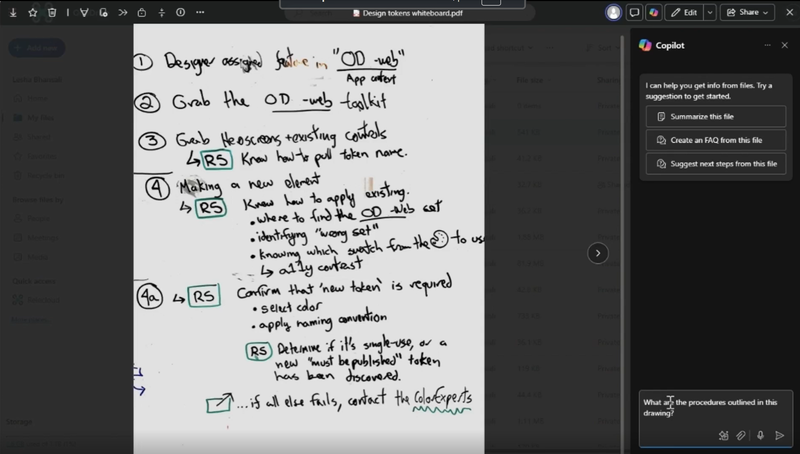 Design tokens whiteboard.pdf
Edit
Share
Copilot
I can help you get info from files. Try a
suggestion to get started.
Summarize this file
Create an FAQ from this file
Suggest next steps from this file
What are the procedures outlined in this
drawing?
1 Designer assigned feature in "OD-web"
App context
2 Grab the OD-web toolkit
3 Grab Heoscreens + existing controls
↳ RS Know how to pull token name.
4 Making a new element
↳ RS Know how to apply existing.
• where to find the OD-Web set
• identifying "wrong set"
• knowing which swatch from the to use
↳ a11y contest
4a ↳ RS Confirm that 'new token' is required
• select color
• apply naming convention
RS Determine if it's single-use, or a
new "must be published" token
has been discovered.
...if all else fails, contact the ColorExperts